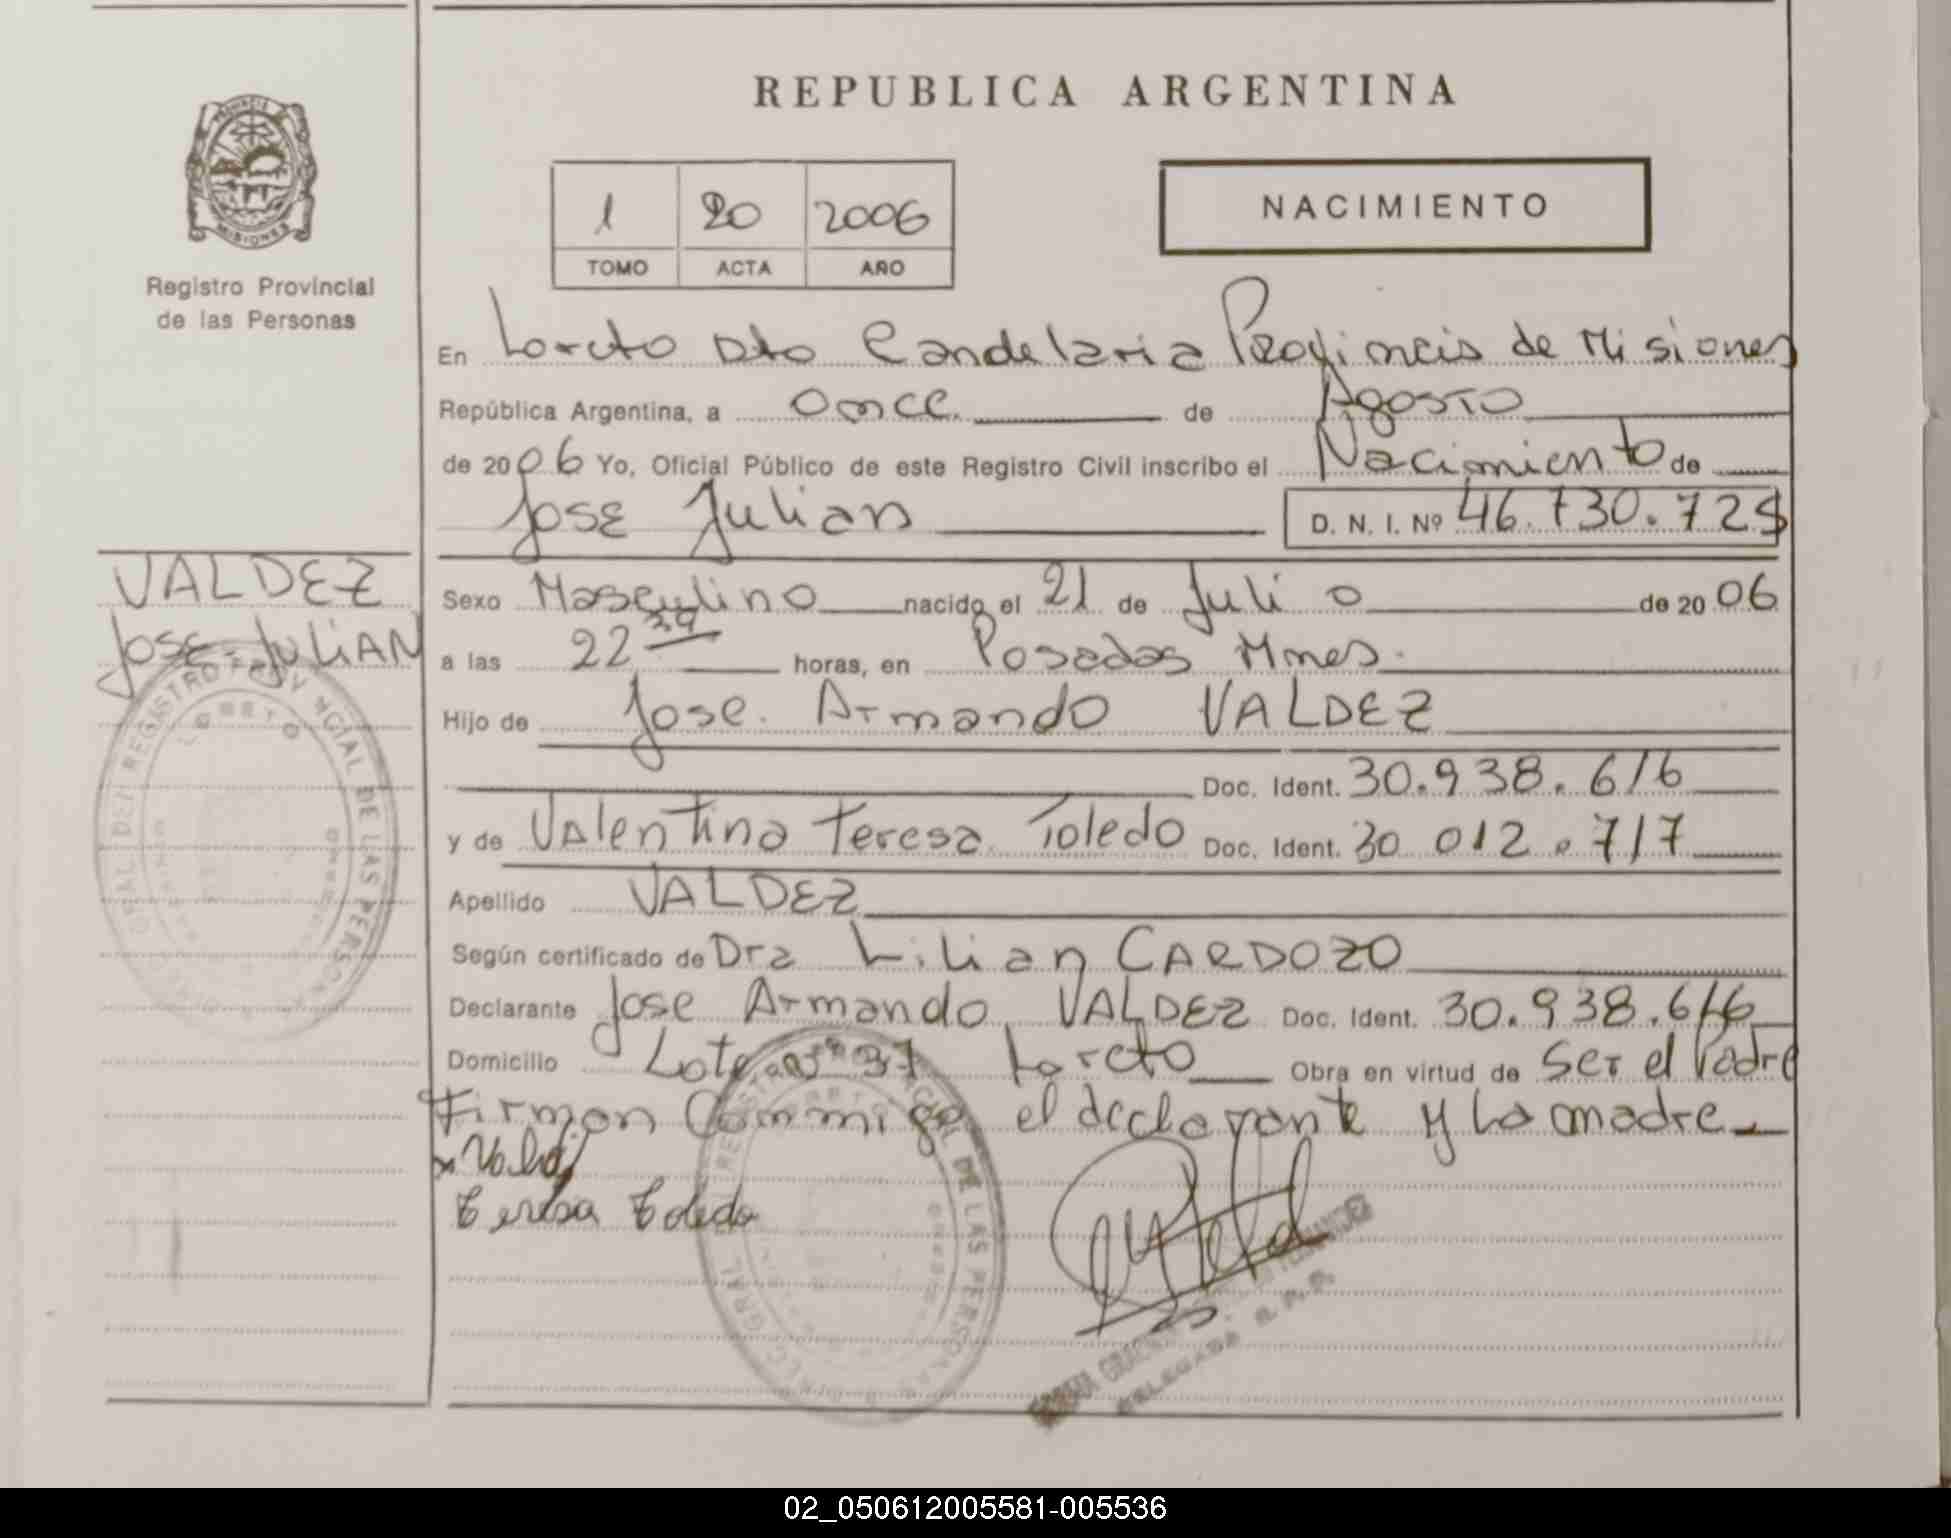 REPUBLICA ARGENTINA
PROVINCIA
MISIONES
Registro Provincial
de las Personas
1 20 2006
TOMO ACTA AÑO
NACIMIENTO
En Loreto Dto Candelaria Provincia de Misiones
República Argentina, a once de Agosto
de 2006 Yo, Oficial Público de este Registro Civil inscribo el Nacimiento de
Jose Julian D. N. I. Nº 46.730.72
VALDEZ
Jose Julian
Sexo Masculino nacido el 21 de Julio de 2006
a las 22 horas, en Posadas Mnes.
Hijo de Jose Armando VALDEZ
Doc. Ident. 30.938.616
y de Valentina Teresa Toledo Doc. Ident. 30 012.717
Apellido VALDEZ
Según certificado de Dra Lilian CARDOZO
Declarante Jose Armando VALDEZ Doc. Ident. 30.938.616
Domicilio Lote nº 37 Loreto Obra en virtud de Ser el Padre
Firman Conmigo el declarante y la madre
Teresa Toledo
REGISTRO PROVINCIAL DE LAS PERSONAS
LORETO
REGISTRO PROVINCIAL DE LAS PERSONAS
DELEGADA R. P. P.
02_050612005581-005536